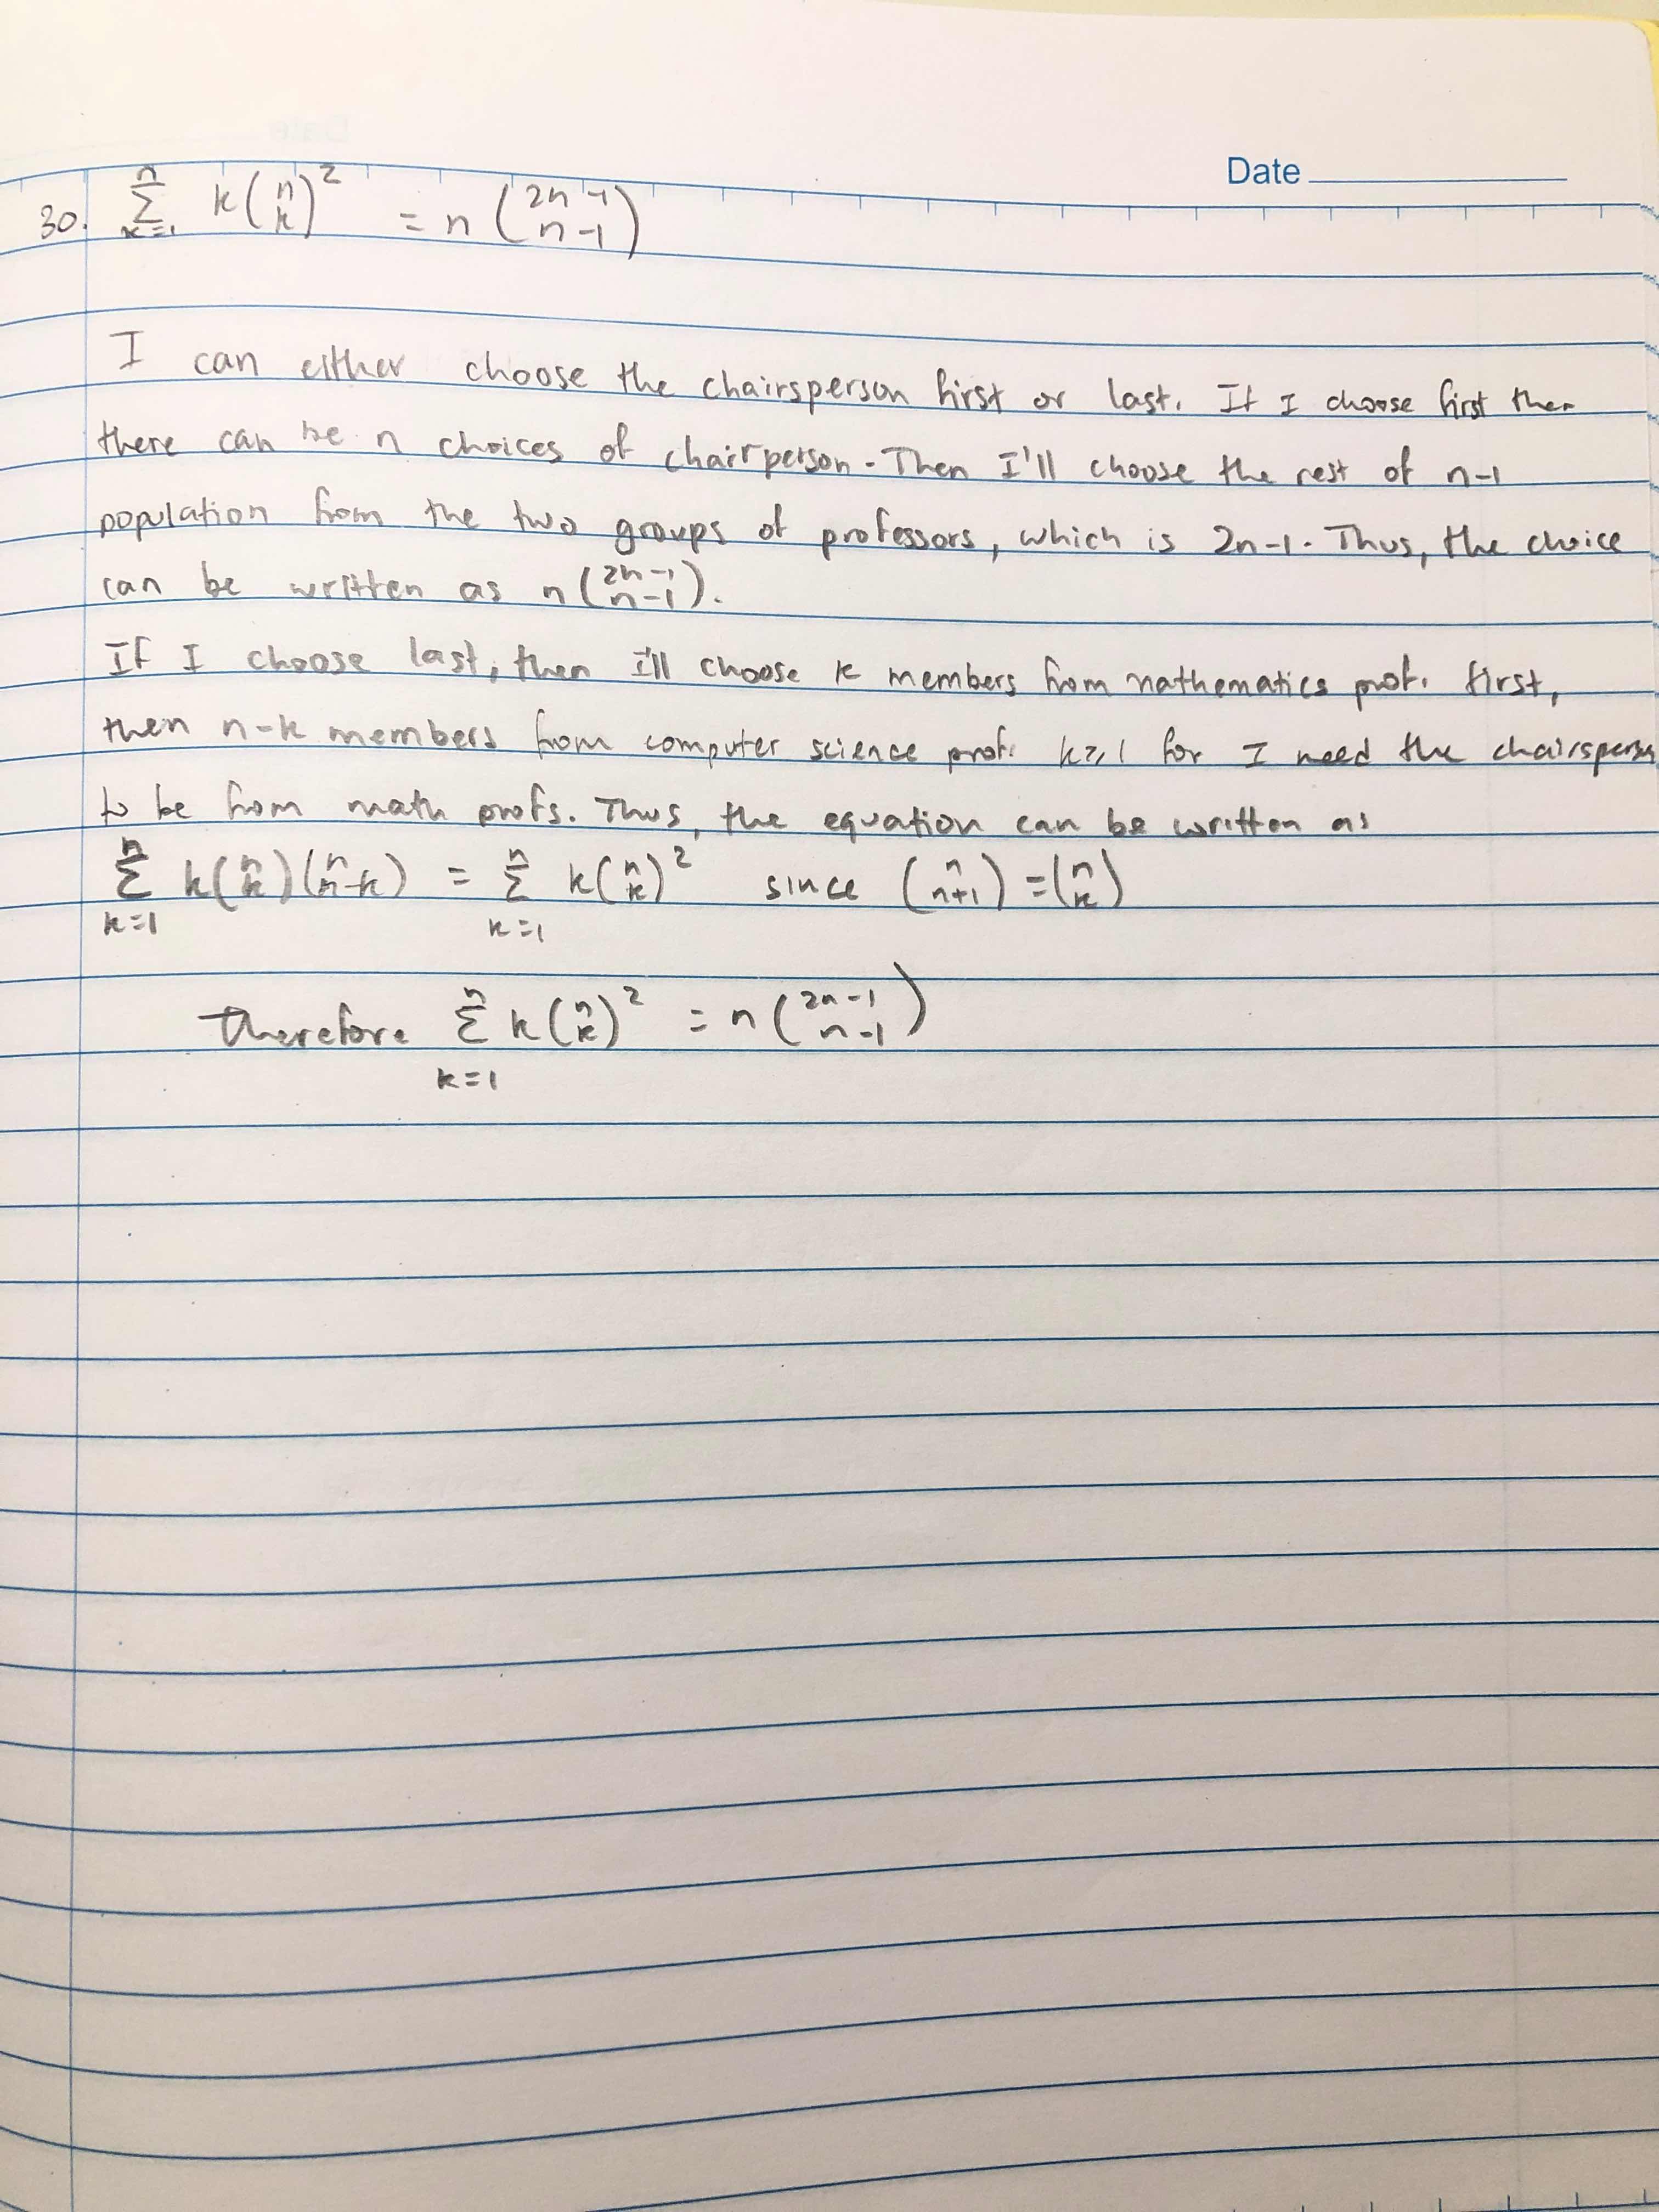 Date
30. \sum_{k=1}^{n} k\binom{n}{k}^2 = n\binom{2n-1}{n-1}
I can either choose the chairsperson first or last. If I choose first then
there can be n choices of chairperson. Then I'll choose the rest of n-1
population from the two groups of professors, which is 2n-1. Thus, the choice
can be written as n\binom{2n-1}{n-1}.
If I choose last, then I'll choose k members from mathematics prof. first,
then n-k members from computer science prof. k≥1 for I need the chairsperson
to be from math profs. Thus, the equation can be written as
\sum_{k=1}^{n} k\binom{n}{k}\binom{n}{n-k} = \sum_{k=1}^{n} k\binom{n}{k}^2 since \binom{n}{n+1} = \binom{n}{k}
Therefore \sum_{k=1}^{n} k\binom{n}{k}^2 = n\binom{2n-1}{n-1}